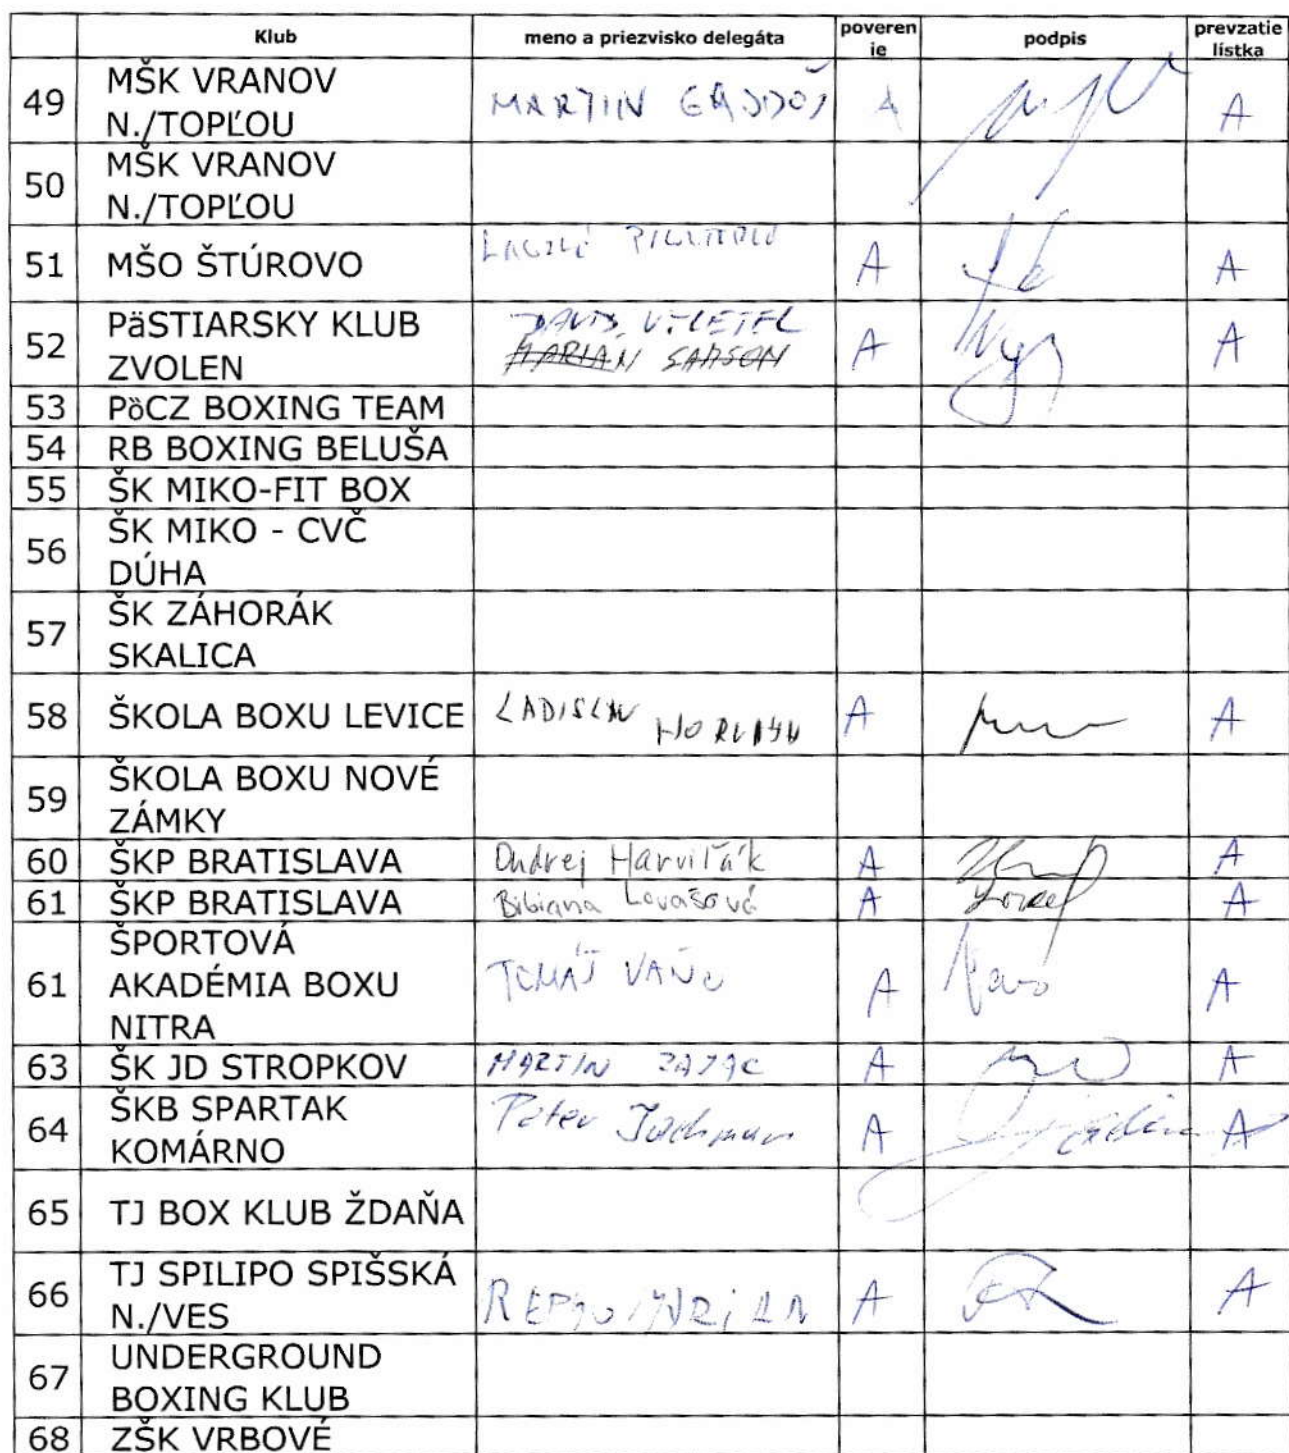 Klub meno a priezvisko delegáta poveren ie podpis prevzatie lístka
49 MŠK VRANOV N./TOPĽOU MARTIN GAJDOŠ A A
50 MŠK VRANOV N./TOPĽOU
51 MŠO ŠTÚROVO A A
52 PäSTIARSKY KLUB ZVOLEN DAVID VÝLETEL MARIÁN SAMSON A A
53 PòCZ BOXING TEAM
54 RB BOXING BELUŠA
55 ŠK MIKO-FIT BOX
56 ŠK MIKO - CVČ DÚHA
57 ŠK ZÁHORÁK SKALICA
58 ŠKOLA BOXU LEVICE LADISLAV A A
59 ŠKOLA BOXU NOVÉ ZÁMKY
60 ŠKP BRATISLAVA Ondrej Harviľák A A
61 ŠKP BRATISLAVA Bibiana Lovašová A A
61 ŠPORTOVÁ AKADÉMIA BOXU NITRA TOMÁŠ VAŇO A A
63 ŠK JD STROPKOV MARTIN ZAJAC A A
64 ŠKB SPARTAK KOMÁRNO Peter A A
65 TJ BOX KLUB ŽDAŇA
66 TJ SPILIPO SPIŠSKÁ N./VES A A
67 UNDERGROUND BOXING KLUB
68 ZŠK VRBOVÉ